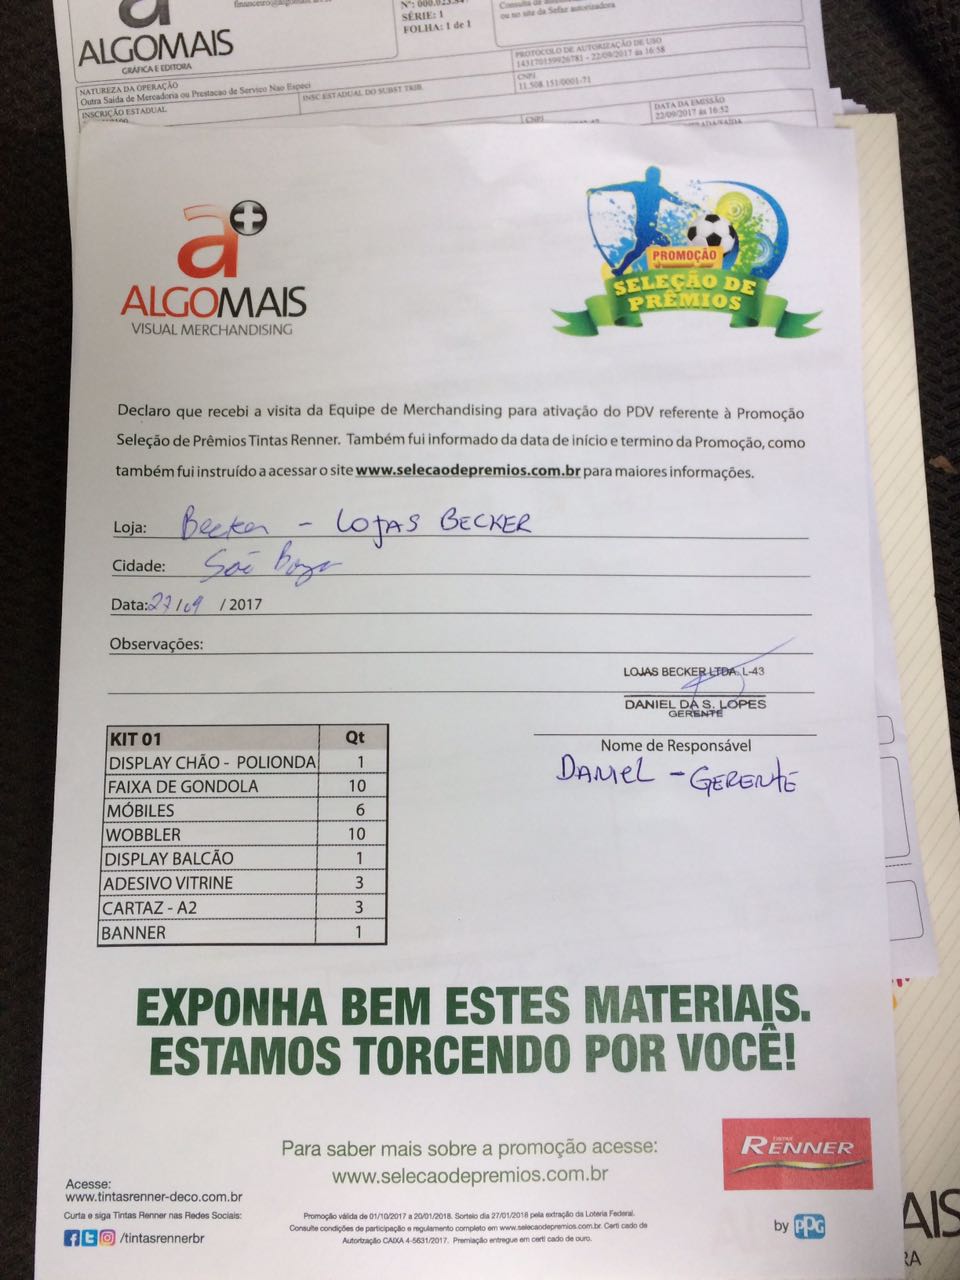 ALGOMAIS
GRÁFICA E EDITORA
SÉRIE: 1
FOLHA: 1 de 1
ou no site da Sefaz autorizadora
PROTOCOLO DE AUTORIZAÇÃO DE USO
143170159926781 - 22/09/2017 às 16:58
NATUREZA DA OPERAÇÃO
Outra Saida de Mercadoria ou Prestacao de Servico Nao Especi
INSC.ESTADUAL DO SUBST TRIB.
CNPJ
11.508.151/0001-71
INSCRIÇÃO ESTADUAL
CNPJ
DATA DA EMISSÃO
22/09/2017 às 16:52
a+
ALGOMAIS
VISUAL MERCHANDISING
PROMOÇÃO
SELEÇÃO DE
PRÊMIOS
Declaro que recebi a visita da Equipe de Merchandising para ativação do PDV referente à Promoção
Seleção de Prêmios Tintas Renner. Também fui informado da data de início e termino da Promoção, como
também fui instruído a acessar o site www.selecaodepremios.com.br para maiores informações.
Loja: Becker - LOJAS BECKER
Cidade: São Borja
Data: 27/09 / 2017
Observações:
LOJAS BECKER LTDA. L-43
DANIEL DA S. LOPES
GERENTE
Nome de Responsável
DANIEL - GERENTE
KIT 01 Qt
DISPLAY CHÃO - POLIONDA 1
FAIXA DE GONDOLA 10
MÓBILES 6
WOBBLER 10
DISPLAY BALCÃO 1
ADESIVO VITRINE 3
CARTAZ - A2 3
BANNER 1
EXPONHA BEM ESTES MATERIAIS.
ESTAMOS TORCENDO POR VOCÊ!
Para saber mais sobre a promoção acesse:
www.selecaodepremios.com.br
TINTAS
RENNER
by PPG
Acesse:
www.tintasrenner-deco.com.br
Curta e siga Tintas Renner nas Redes Sociais:
/tintasrennerbr
Promoção válida de 01/10/2017 a 20/01/2018. Sorteio dia 27/01/2018 pela extração da Loteria Federal.
Consulte condições de participação e regulamento completo em www.selecaodepremios.com.br. Certi cado de
Autorização CAIXA 4-5631/2017. Premiação entregue em certi cado de ouro.
AIS
RA